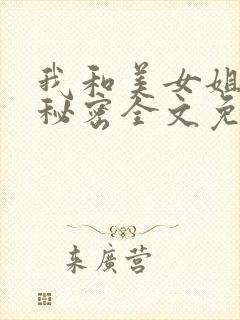 我和美女姐
秘密全文免
来廣营